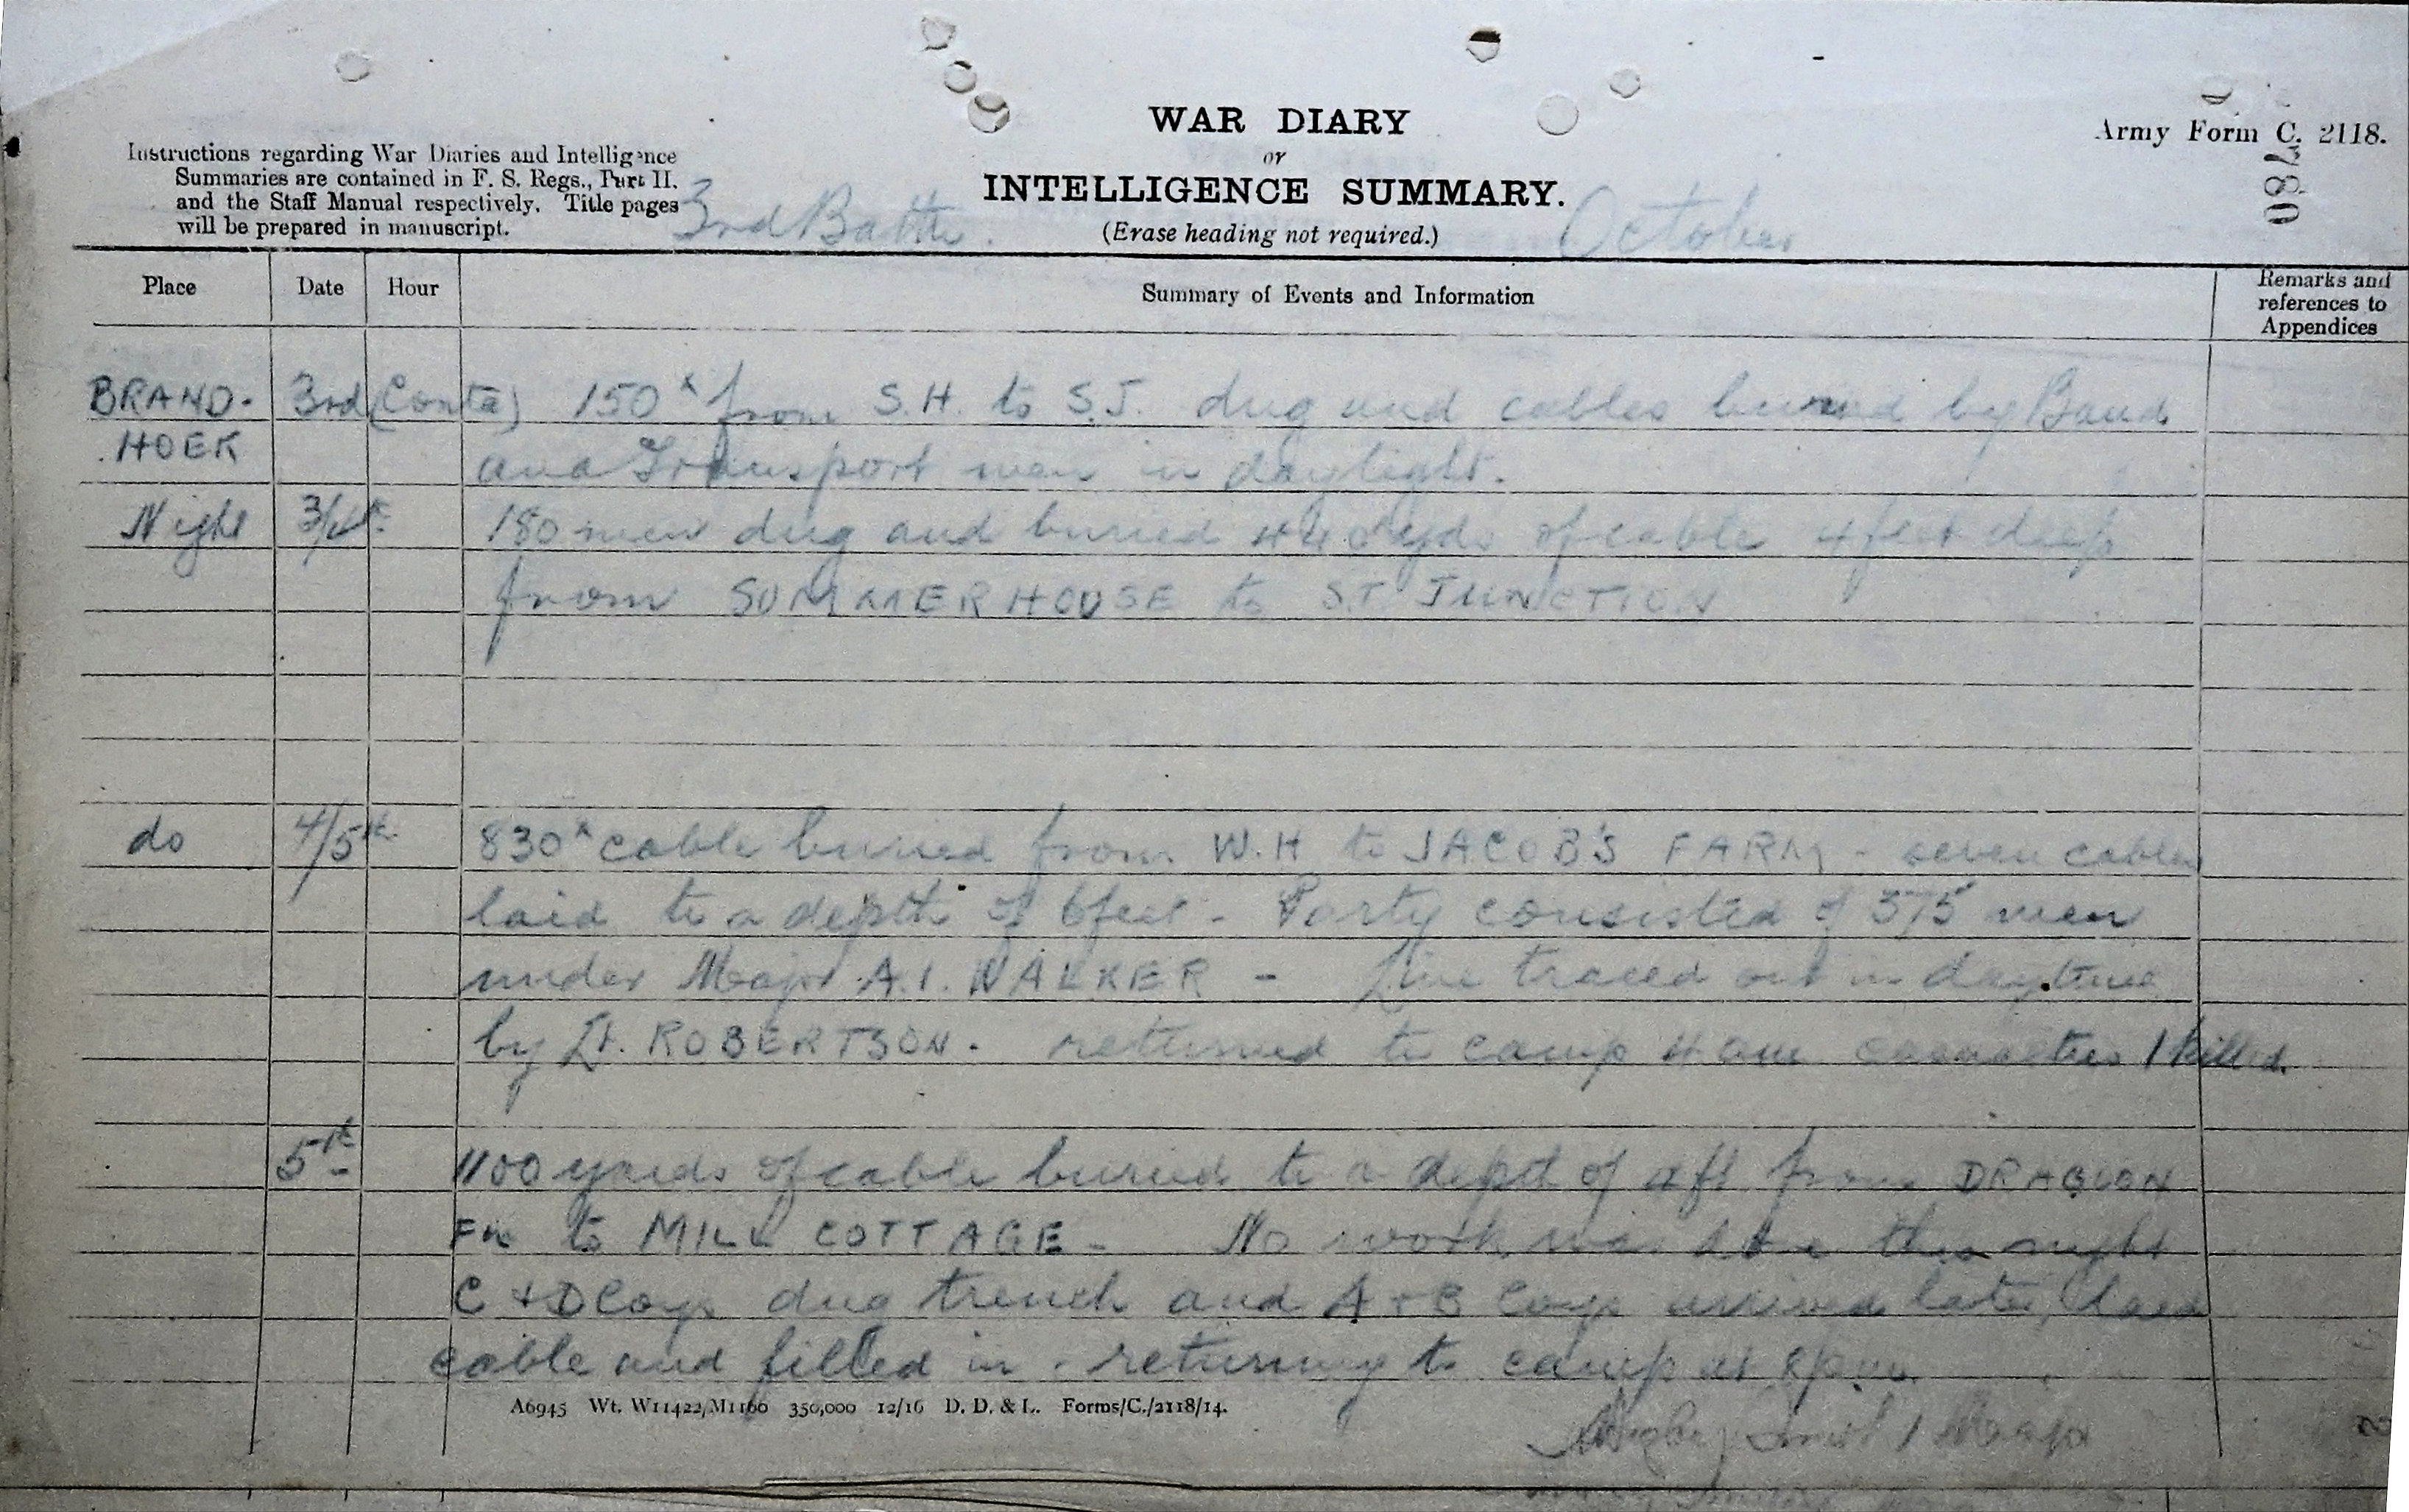 WAR DIARY
or
INTELLIGENCE SUMMARY.
(Erase heading not required.)
Army Form C. 2118.
780
Instructions regarding War Diaries and Intelligence
Summaries are contained in F. S. Regs., Part II.
and the Staff Manual respectively. Title pages
will be prepared in manuscript.
3rd Battn. October
Place Date Hour Summary of Events and Information Remarks and references to Appendices
BRAND- 3rd (Contd) 150x from S.H. to S.J. dug and cables buried by Band
HOEK and Transport men in daylight.
Night 3/4th 180 men dug and buried 440 yds of cable 4 feet deep
from SUMMERHOUSE to ST JUNCTION
do 4/5th 830x cable buried from W.H to JACOB'S FARM - seven cables
laid to a depth of 6 feet - Party consisted of 375 men
under Major A.I. WALKER - Line traced out in daytime
by Lt. ROBERTSON. returned to camp 4 am casualties 1 killed.
5th 1100 yards of cable buried to a dept of 2ft from DRAGOON
Fm to MILL COTTAGE - No work was done this night
C & D Coys dug trench and A & B Coys arrived later, laid
cable and filled in. returning to camp at 8pm.
A6945 Wt. W11422/M1160 350,000 12/16 D. D. & L. Forms/C./2118/14.
Major